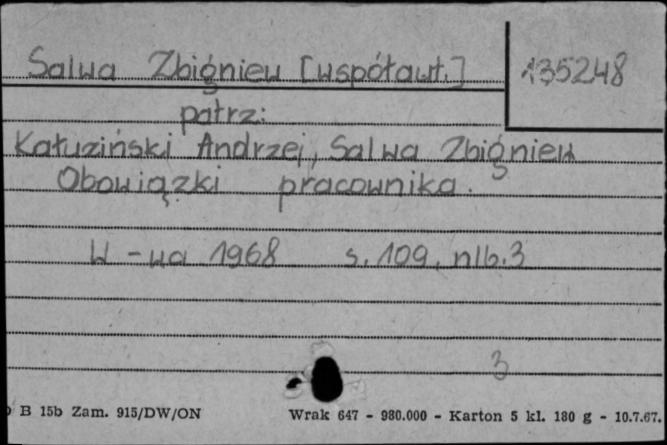 Salwa Zbigniew [współaut.] 135248
patrz:
Kałuziński Andrzej, Salwa Zbigniew
Obowiązki pracownika.
W-wa 1968 s. 109, nlb. 3
3
B 15b Zam. 915/DW/ON Wrak 647 - 980.000 - Karton 5 kl. 180 g - 10.7.67.